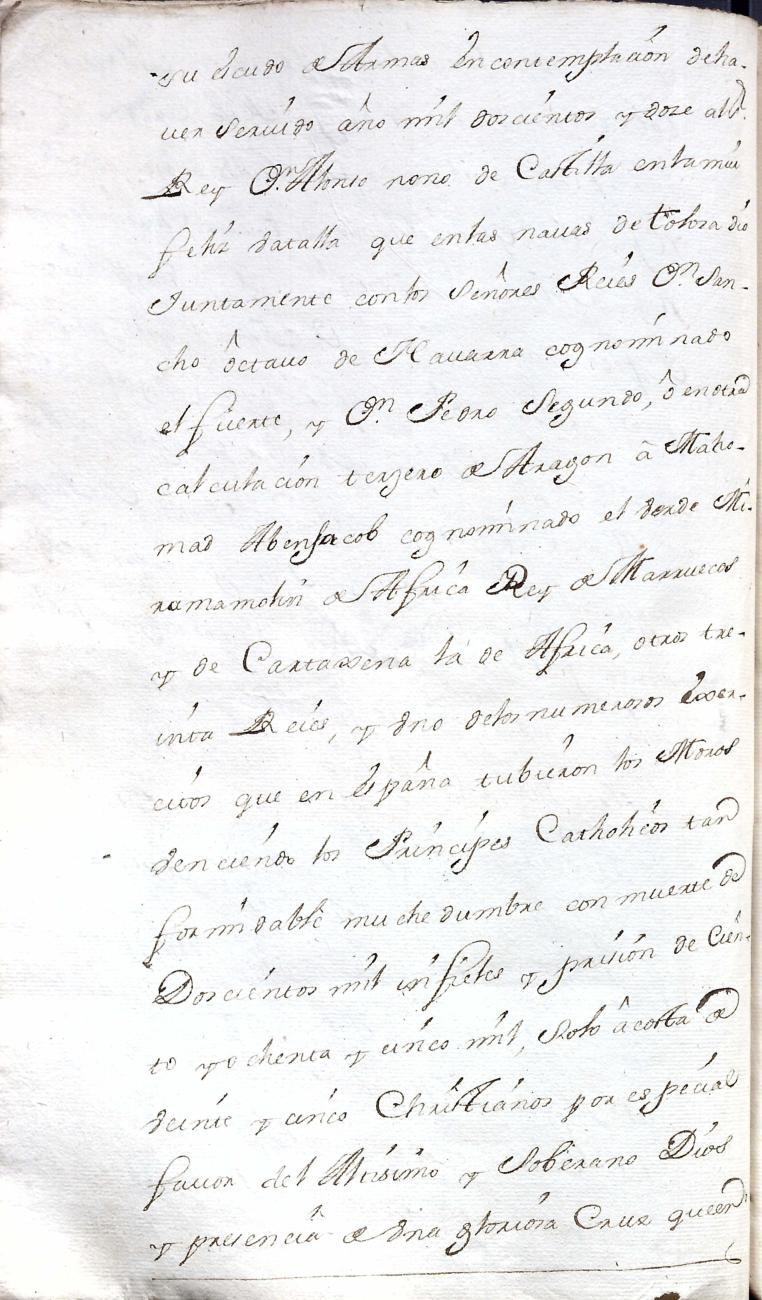 su escudo de Armas en contemplación de ha-
ver servido año mil doscientos y doze al Sr.
Rey Dn. Alonso nono de Castilla en la mui
feliz vatalla que en las navas de tolosa dio
Juntamente con los Señores Reies Dn. San-
cho Octavo de Navarra cognominado
el fuerte, y Dn. Pedro Segundo, ô en otra
calculación terzero de Aragon â Maho-
mad AbenJacob cognominado el verde Mi-
ramamolin de Africa Rey de Marruecos
y de Cartaxena la de Africa, otros tre-
inta Reies, y vno de los numerosos Exer-
citos que en españa tubieron los Moros
venciendo los Principes Catholicos tan
formidable muchedumbre con muerte de
Doscientos mil infieles y prisión de Cien-
to y ochenta y cinco mil, solo â costa de
veinte y cinco Christianos por especial
favor del Altisimo y Soberano Dios
y presencia de vna gloriosa Cruz que en